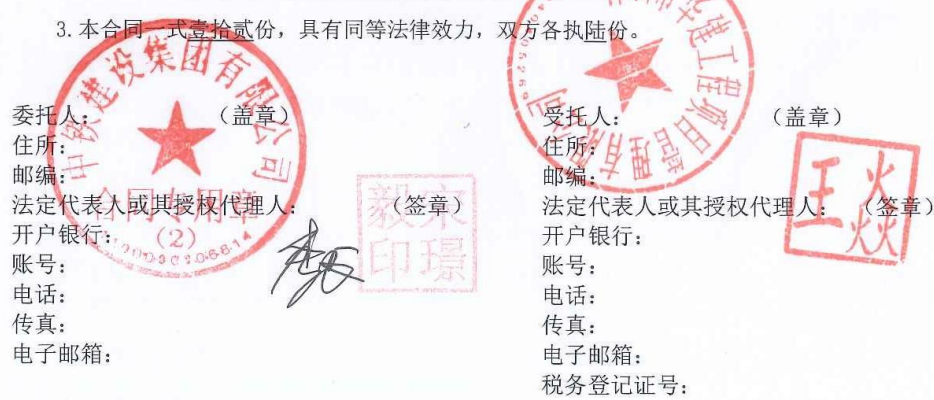 3.本合同一式壹拾贰份，具有同等法律效力，双方各执陆份。
委托人：（盖章）
住所：
邮编：
法定代表人或其授权代理人：（签章）
开户银行：
账号：
电话：
传真：
电子邮箱：
中铁建设集团有限公司
合同专用章
（2）
宋璟
毅印
受托人：（盖章）
住所：
邮编：
法定代表人或其授权代理人：（签章）
开户银行：
账号：
电话：
传真：
电子邮箱：
税务登记证号：
华建工程项目管理有限公司
王燚